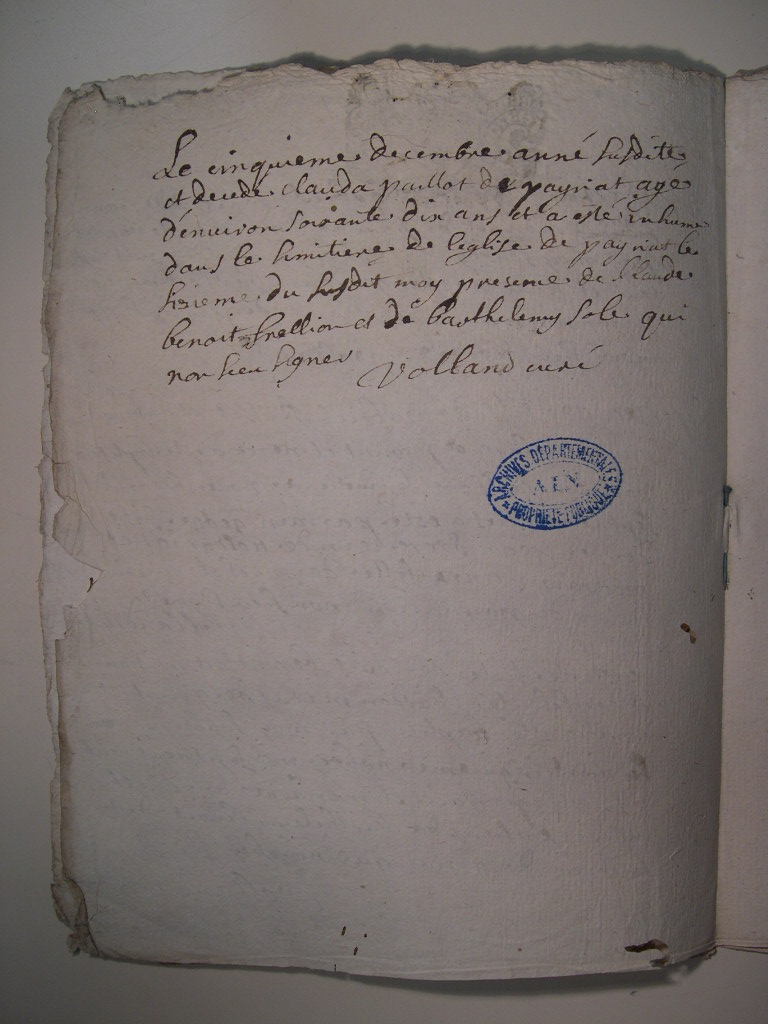 Le cinquieme decembre anné susditte
et decede clauda paillot de payriat agé
d'enuiron soixante dix ans et a esté inhume
dans le simitiere de leglise de payriat le
sizieme du susdit moy presence de Claude
benoit et de barthelemy sole qui
non sceu signer Volland curé
ARCHIVES DÉPARTEMENTALES
AIN
PROPRIÉTÉ PUBLIQUE